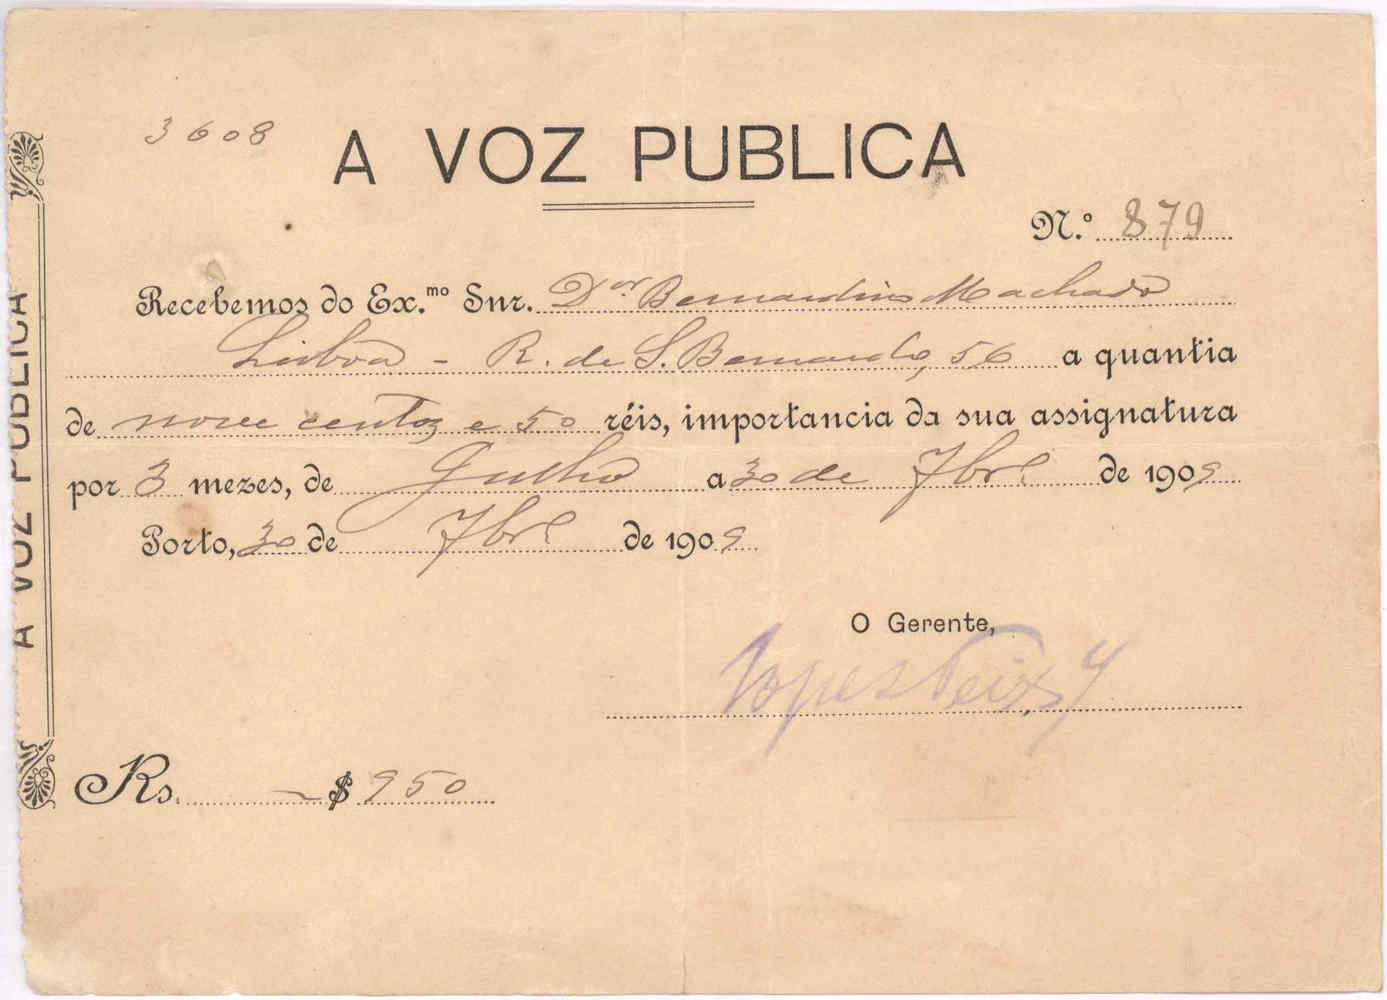 3608
A VOZ PUBLICA
N.º 879
Recebemos do Ex.mo Snr. Dor. Bernardino Machado
Lisboa - R. de S. Bernardo, 56 a quantia
de nove centos e 50 réis, importancia da sua assignatura
por 3 mezes, de Julho a 30 de 7bre de 1909
Porto, 30 de 7bre de 1909
O Gerente,
Lopes Teixª
Rs. — $ 950
A VOZ PUBLICA